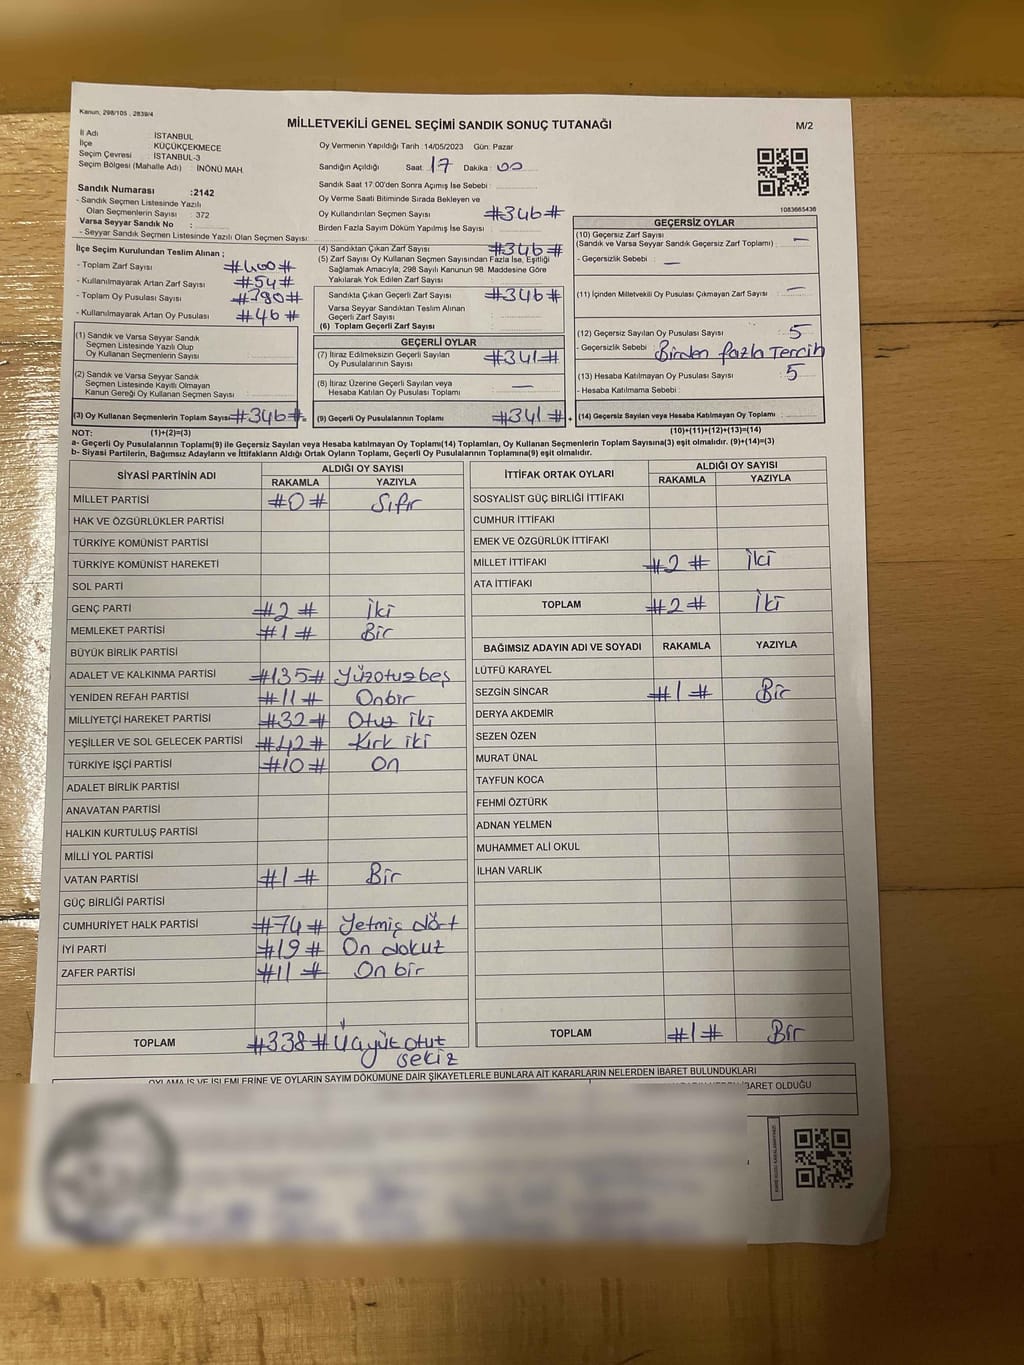 Kanun, 298/105 , 2839/4
MİLLETVEKİLİ GENEL SEÇİMİ SANDIK SONUÇ TUTANAĞI
M/2
İl Adı : İSTANBUL
İlçe : KÜÇÜKÇEKMECE
Seçim Çevresi : İSTANBUL-3
Seçim Bölgesi (Mahalle Adı) : İNÖNÜ MAH
Sandık Numarası :2142
- Sandık Seçmen Listesinde Yazılı
Olan Seçmenlerin Sayısı : 372
Varsa Seyyar Sandık No :
- Seyyar Sandık Seçmen Listesinde Yazılı Olan Seçmen Sayısı:
İlçe Seçim Kurulundan Teslim Alınan ;
- Toplam Zarf Sayısı #400#
- Kullanılmayarak Artan Zarf Sayısı #54#
- Toplam Oy Pusulası Sayısı
- Kullanılmayarak Artan Oy Pusulası #46#
(1) Sandık ve Varsa Seyyar Sandık
Seçmen Listesinde Yazılı Olup
Oy Kullanan Seçmenlerin Sayısı
(2) Sandık ve Varsa Seyyar Sandık
Seçmen Listesinde Kayıtlı Olmayan
Kanun Gereği Oy Kullanan Seçmen Sayısı
(3) Oy Kullanan Seçmenlerin Toplam Sayısı #346#
Oy Vermenin Yapıldığı Tarih : 14/05/2023 Gün: Pazar
Sandığın Açıldığı Saat : 17 Dakika : 00
Sandık Saat 17:00'den Sonra Açımış İse Sebebi :
Oy Verme Saati Bitiminde Sırada Bekleyen ve
Oy Kullandırılan Seçmen Sayısı #346#
Birden Fazla Sayım Döküm Yapılmış İse Sayısı :
(4) Sandıktan Çıkan Zarf Sayısı #346#
(5) Zarf Sayısı Oy Kullanan Seçmen Sayısından Fazla İse, Eşitliği
Sağlamak Amacıyla, 298 Sayılı Kanunun 98. Maddesine Göre
Yakılarak Yok Edilen Zarf Sayısı :
Sandıkta Çıkan Geçerli Zarf Sayısı #346#
Varsa Seyyar Sandıktan Teslim Alınan
Geçerli Zarf Sayısı
(6) Toplam Geçerli Zarf Sayısı
GEÇERLİ OYLAR
(7) İtiraz Edilmeksizin Geçerli Sayılan
Oy Pusulalarının Sayısı #341#
(8) İtiraz Üzerine Geçerli Sayılan veya
Hesaba Katılan Oy Pusulaları Toplamı —
(9) Geçerli Oy Pusulalarının Toplamı #341#
1083665436
GEÇERSİZ OYLAR
(10) Geçersiz Zarf Sayısı
(Sandık ve Varsa Seyyar Sandık Geçersiz Zarf Toplamı) : —
- Geçersizlik Sebebi : —
(11) İçinden Milletvekili Oy Pusulası Çıkmayan Zarf Sayısı : —
(12) Geçersiz Sayılan Oy Pusulası Sayısı : 5
- Geçersizlik Sebebi : Birden fazla Tercih
(13) Hesaba Katılmayan Oy Pusulası Sayısı : 5
- Hesaba Katılmama Sebebi :
(14) Geçersiz Sayılan veya Hesaba Katılmayan Oy Toplamı
NOT: (1)+(2)=(3)
(10)+(11)+(12)+(13)=(14)
a- Geçerli Oy Pusulalarının Toplamı(9) ile Geçersiz Sayılan veya Hesaba katılmayan Oy Toplamı(14) Toplamları, Oy Kullanan Seçmenlerin Toplam Sayısına(3) eşit olmalıdır. (9)+(14)=(3)
b- Siyasi Partilerin, Bağımsız Adayların ve İttifakların Aldığı Oyların Toplamı, Geçerli Oy Pusulalarının Toplamına(9) eşit olmalıdır.
SİYASİ PARTİNİN ADI ALDIĞI OY SAYISI
RAKAMLA YAZIYLA
MİLLET PARTİSİ #0# Sıfır
HAK VE ÖZGÜRLÜKLER PARTİSİ
TÜRKİYE KOMÜNİST PARTİSİ
TÜRKİYE KOMÜNİST HAREKETİ
SOL PARTİ
GENÇ PARTİ #2# İki
MEMLEKET PARTİSİ #1# Bir
BÜYÜK BİRLİK PARTİSİ
ADALET VE KALKINMA PARTİSİ #135# Yüzotuzbeş
YENİDEN REFAH PARTİSİ #11# Onbir
MİLLİYETÇİ HAREKET PARTİSİ #32# Otuz iki
YEŞİLLER VE SOL GELECEK PARTİSİ #42# Kırk iki
TÜRKİYE İŞÇİ PARTİSİ #10# On
ADALET BİRLİK PARTİSİ
ANAVATAN PARTİSİ
HALKIN KURTULUŞ PARTİSİ
MİLLİ YOL PARTİSİ
VATAN PARTİSİ #1# Bir
GÜÇ BİRLİĞİ PARTİSİ
CUMHURİYET HALK PARTİSİ #74# Yetmiş dört
İYİ PARTİ #19# On dokuz
ZAFER PARTİSİ #11# On bir
TOPLAM #338# Üçyüz otuz
sekiz
İTTİFAK ORTAK OYLARI ALDIĞI OY SAYISI
RAKAMLA YAZIYLA
SOSYALİST GÜÇ BİRLİĞİ İTTİFAKI
CUMHUR İTTİFAKI
EMEK VE ÖZGÜRLÜK İTTİFAKI
MİLLET İTTİFAKI #2# İki
ATA İTTİFAKI
TOPLAM #2# İki
BAĞIMSIZ ADAYIN ADI VE SOYADI RAKAMLA YAZIYLA
LÜTFÜ KARAYEL
SEZGİN SİNCAR #1# Bir
DERYA AKDEMİR
SEZEN ÖZEN
MURAT ÜNAL
TAYFUN KOCA
FEHMİ ÖZTÜRK
ADNAN YELMEN
MUHAMMET ALİ OKUL
İLHAN VARLIK
TOPLAM #1# Bir
OYLAMA İŞ VE İŞLEMLERİNE VE OYLARIN SAYIM DÖKÜMÜNE DAİR ŞİKAYETLERLE BUNLARA AİT KARARLARIN NELERDEN İBARET BULUNDUKLARI
İBARET OLDUĞU